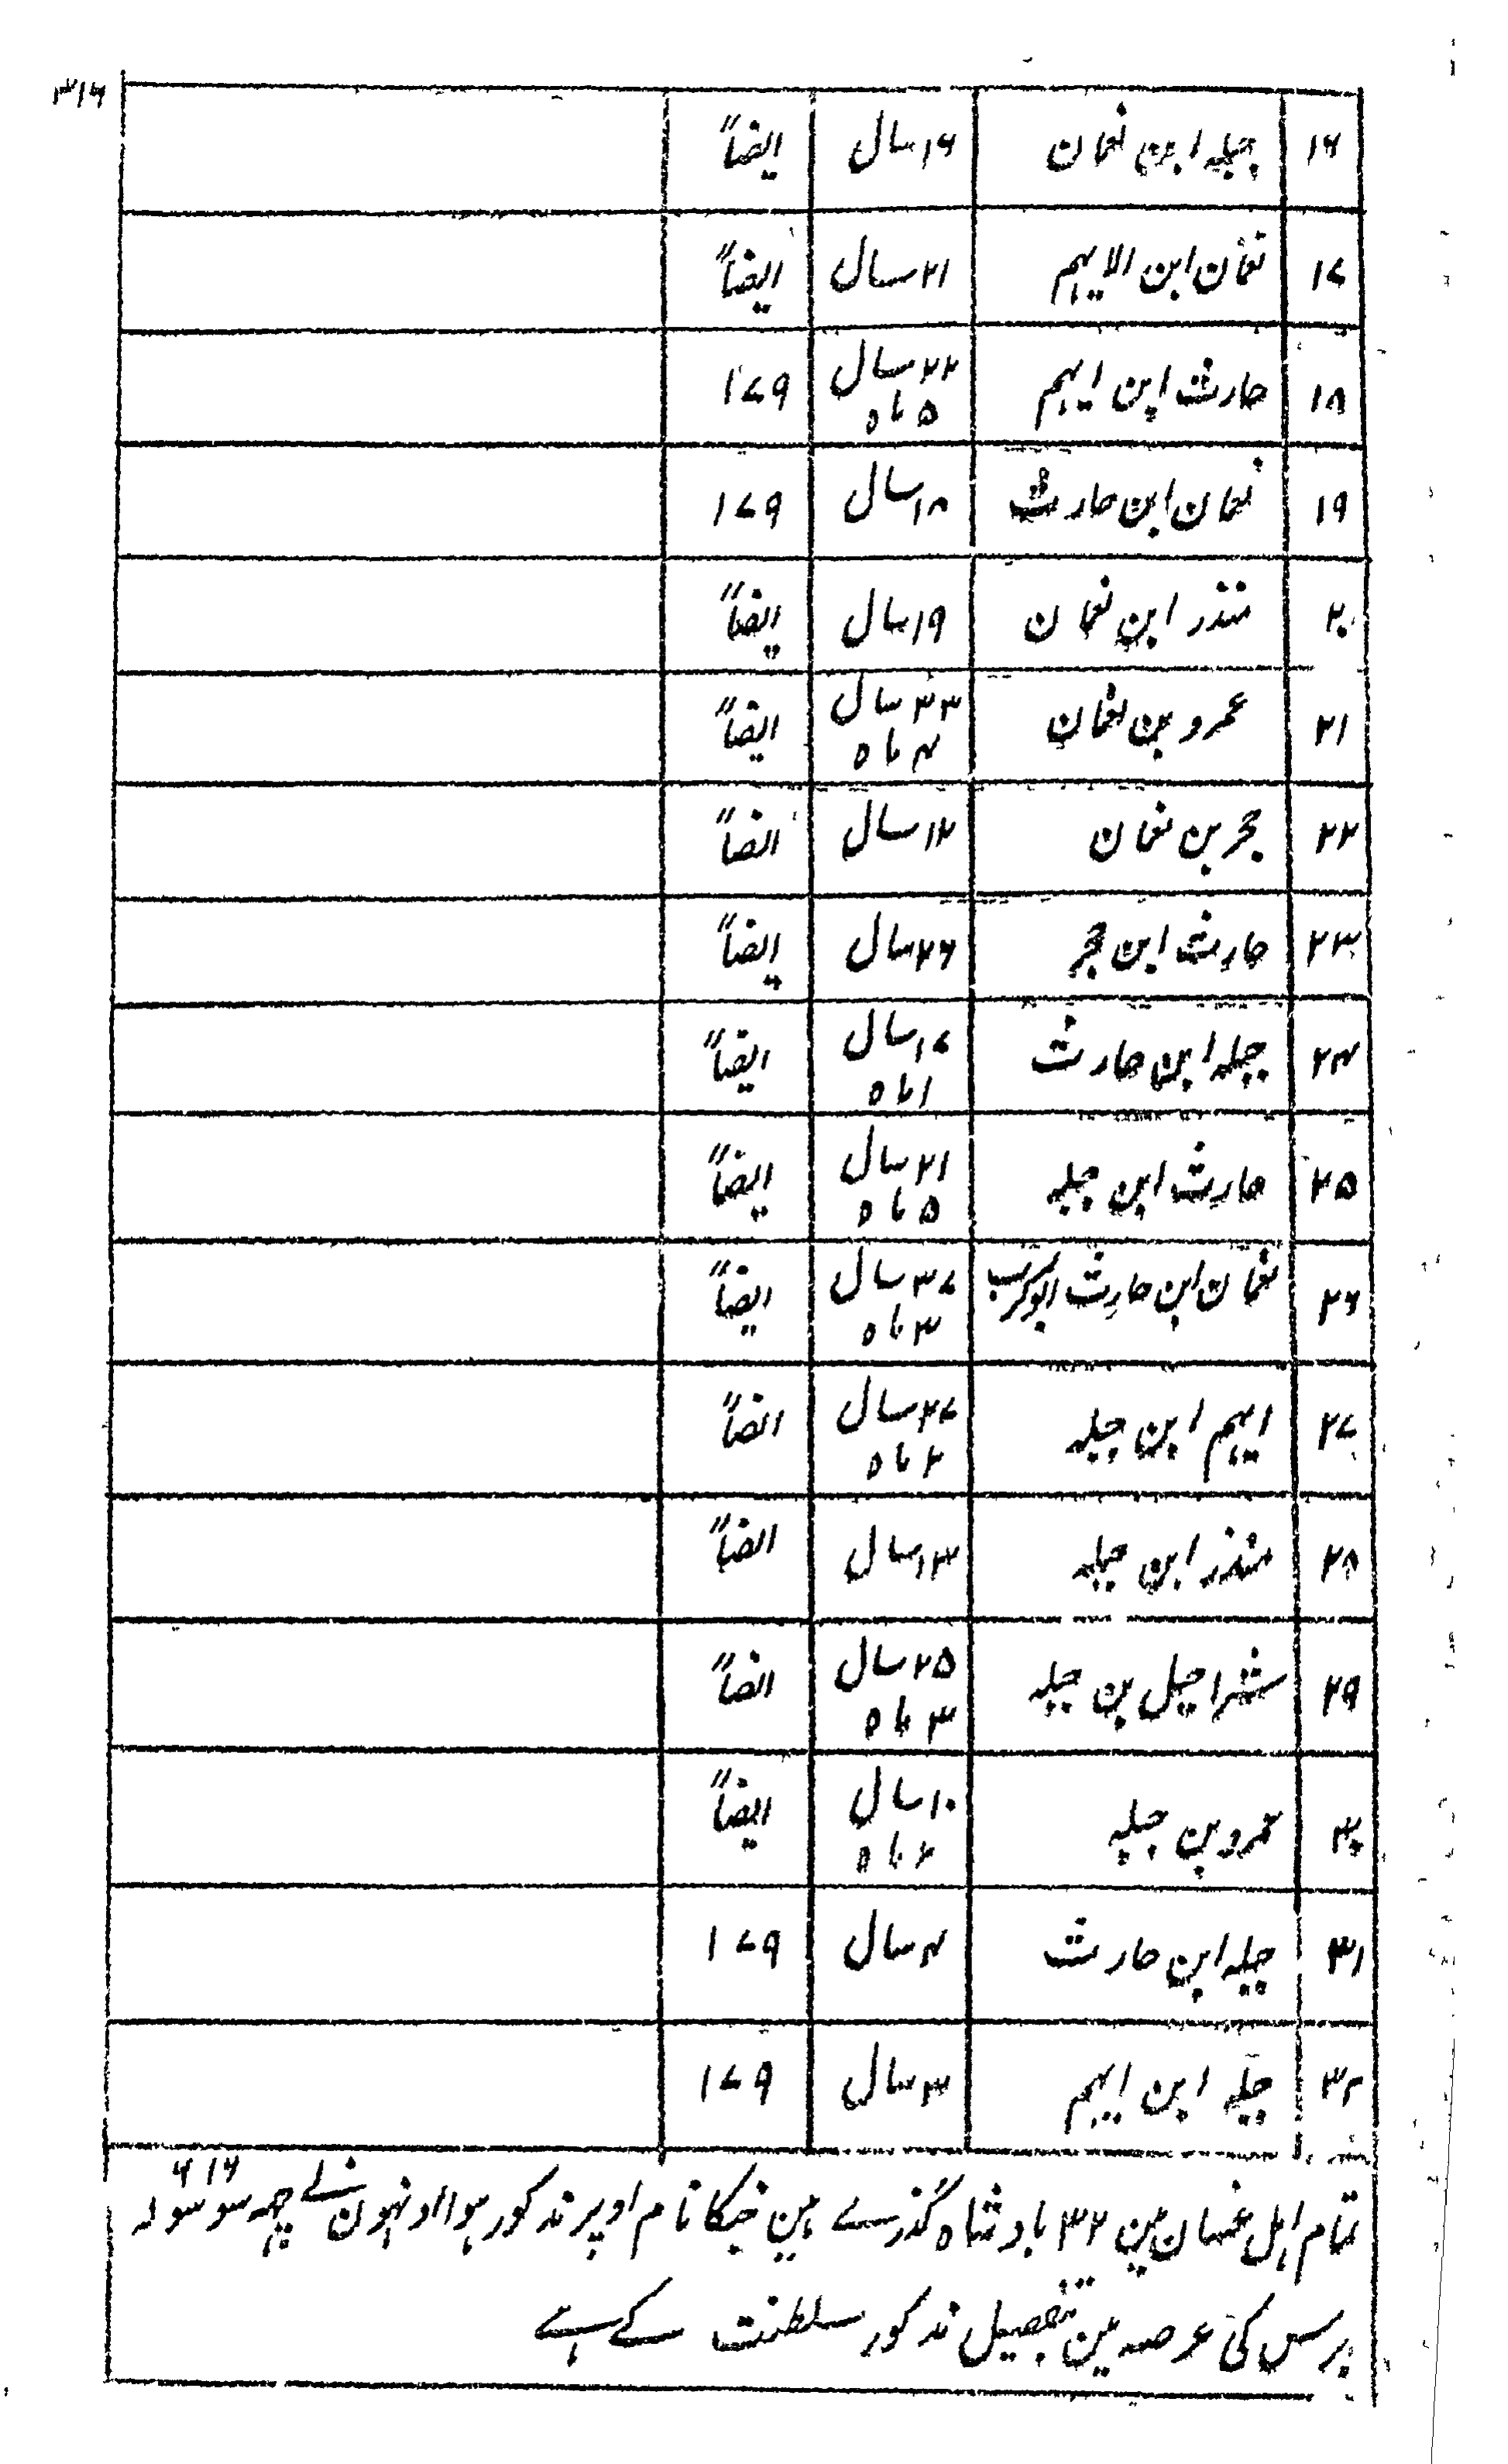 ۳۱۶
۱۶ جبلہ ابن نعمان ۱۶سال ایضاً
۱۷ نعمان ابن الایہم ۲۱سال ایضاً
۱۸ حارث ابن ایہم ۲۲سال ۵ ماہ ۱۷۹
۱۹ نعمان ابن حارث ۱۸سال ۱۷۹
۲۰ منذر ابن نعمان ۱۹سال ایضاً
۲۱ عمرو بن نعمان ۳۳سال ۴ ماہ ایضاً
۲۲ حجر بن نعمان ۱۲سال ایضاً
۲۳ حارث ابن حجر ۲۶سال ایضاً
۲۴ جبلہ ابن حارث ۱۷سال ۱ماہ ایضاً
۲۵ حارث ابن جبلہ ۲۱سال ۵ ماہ ایضاً
۲۶ نعمان ابن حارث ابوکرب ۳۷سال ۳ماہ ایضاً
۲۷ ایہم ابن جبلہ ۲۷سال ۲ماہ ایضاً
۲۸ منذر ابن جبلہ ۱۳سال ایضاً
۲۹ شراحیل بن جبلہ ۲۵سال ۳ماہ ایضاً
۳۰ عمرو بن جبلہ ۱۰سال ۲ماہ ایضاً
۳۱ جبلہ ابن حارث ۴سال ۱۷۹
۳۲ جبلہ ابن ایہم ۳سال ۱۷۹
۶۱۶
تمام اہل غسان مین ۳۲ بادشاہ گذرے ہین جنکا نام اوپر مذکور ہوا اونہون نے چھہ سو سولہ
برس کی عرصہ مین بتفصیل مذکور سلطنت کے ہے